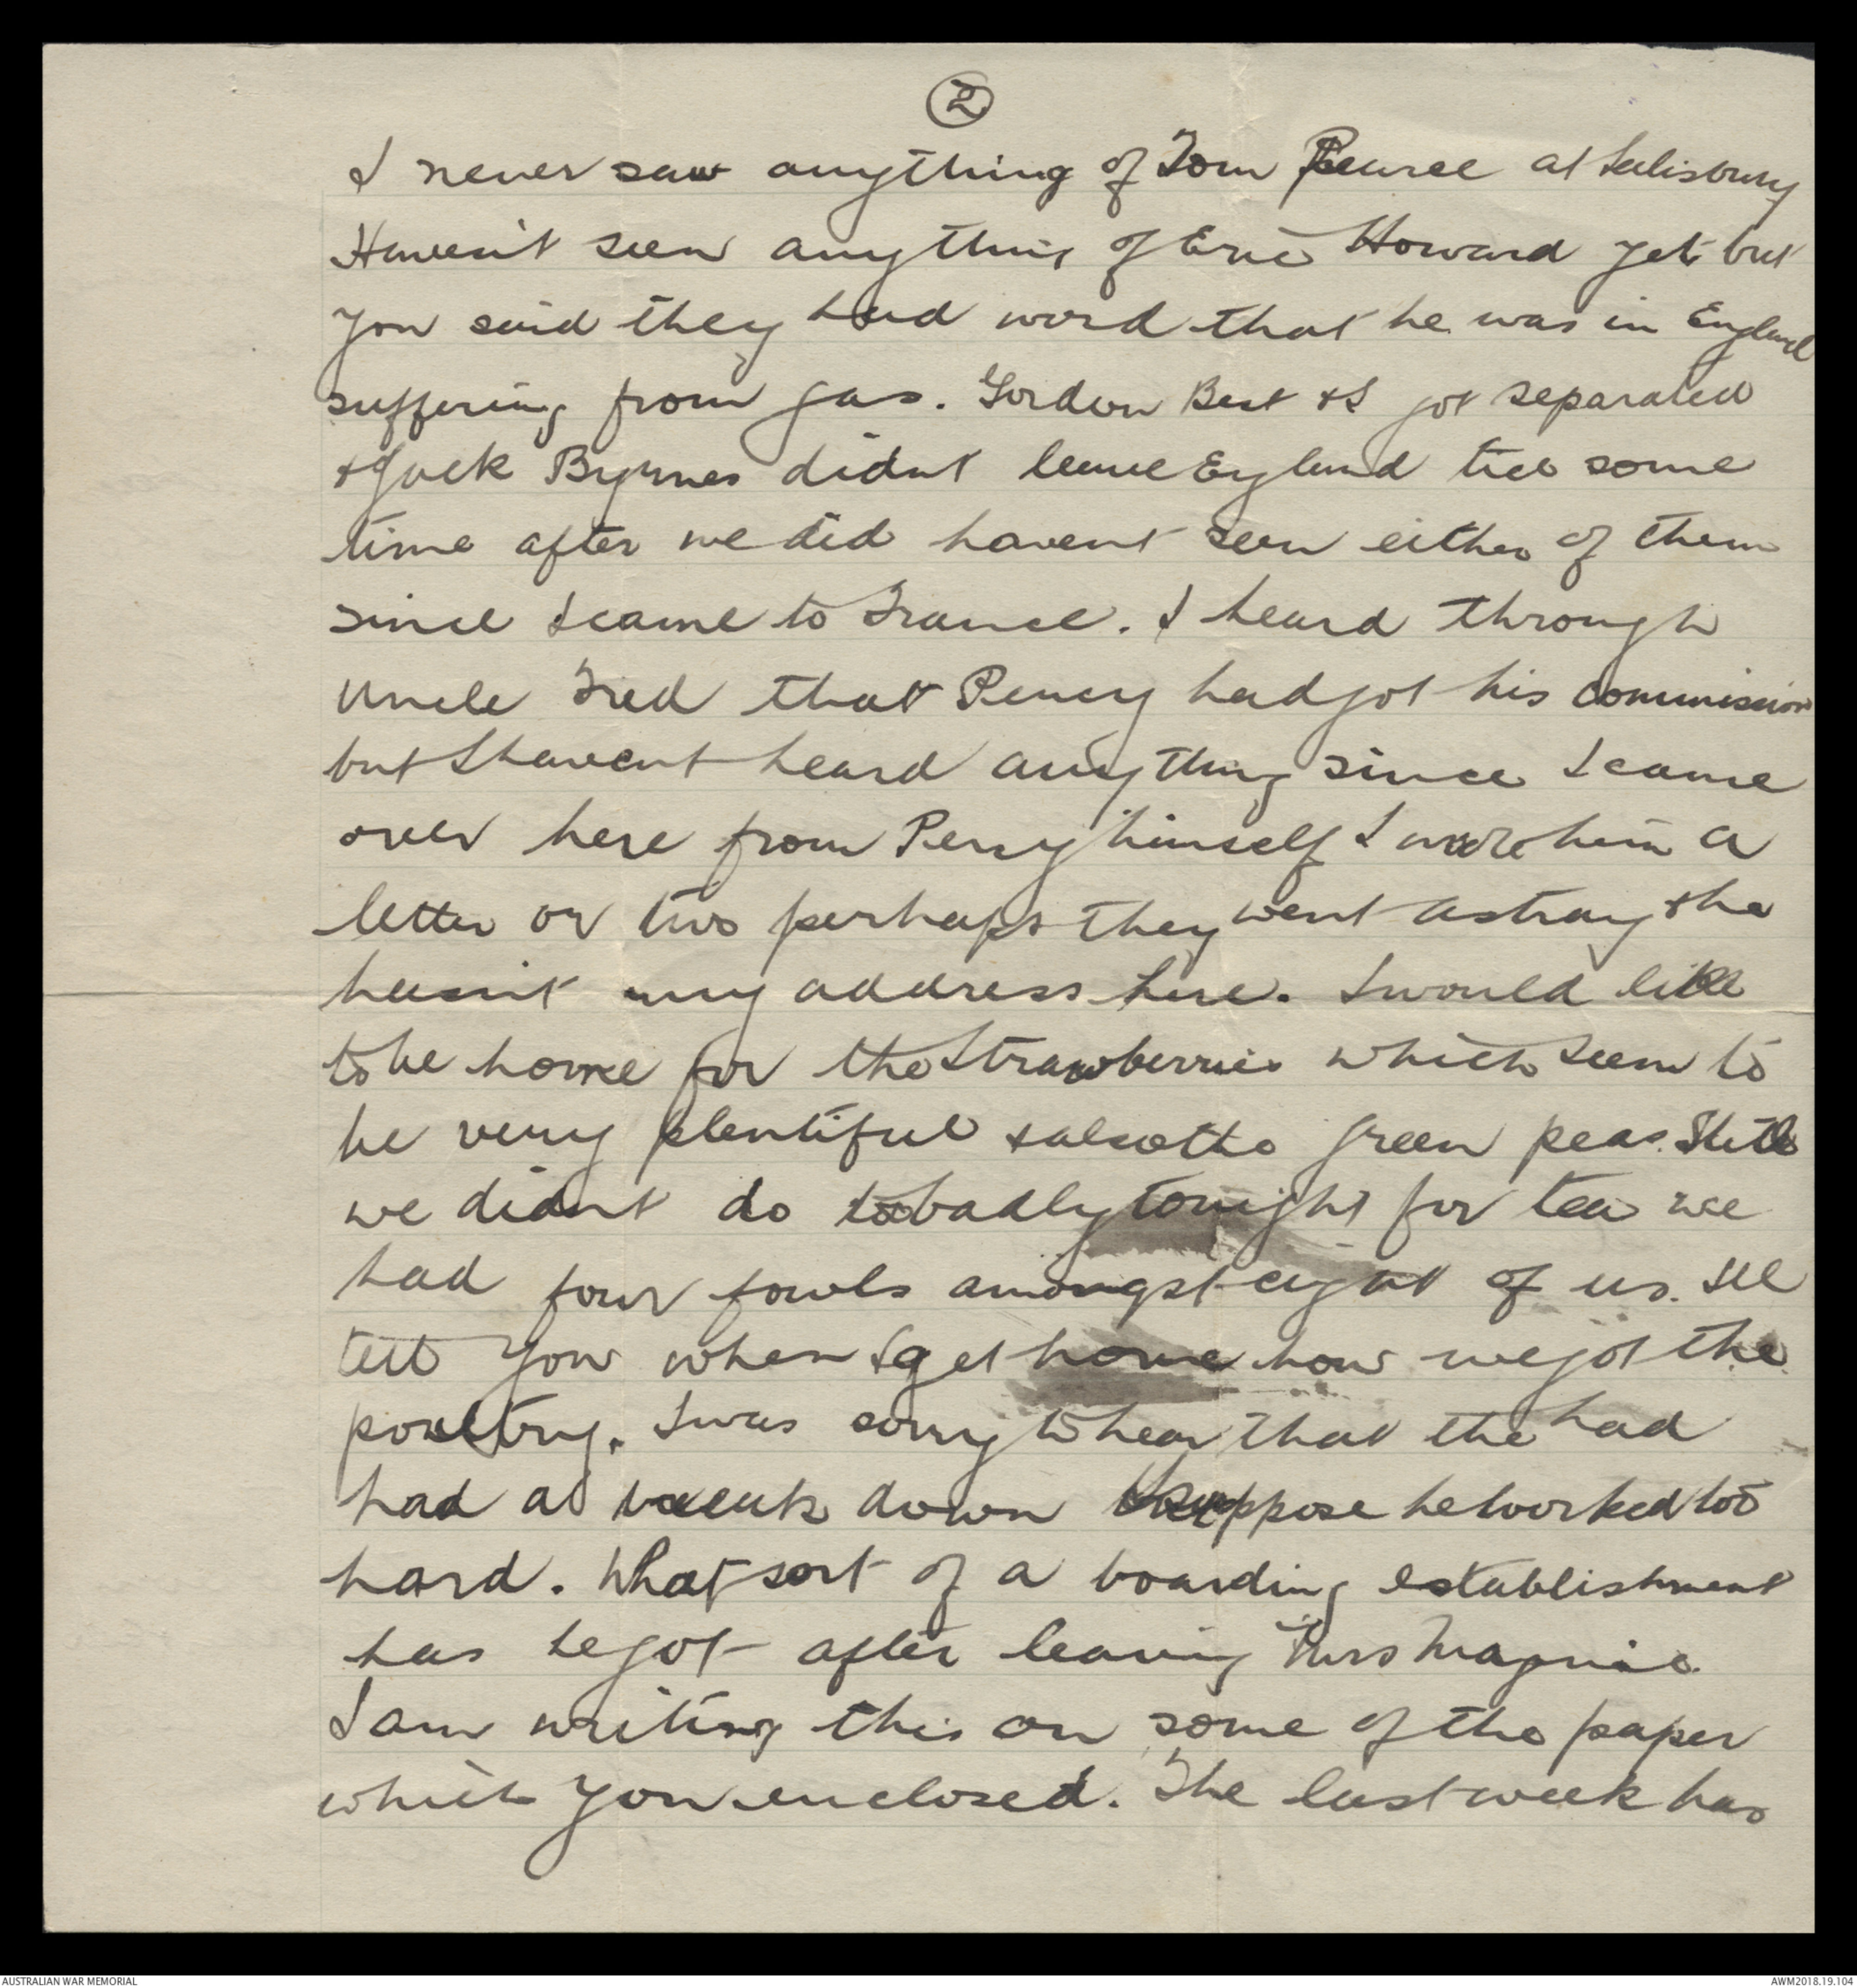 2
I never saw anything of Tom Pearce at Salisbury
Haven't seen anything of Eric Howard yet but
you said they had word that he was in England
suffering from gas. Gordon Best & I got separated
& Jack Byrnes didnt leave England till some
time after we did havent seen either of them
since I came to France. I heard through
Uncle Fred that Percy had got his commission
but I havent heard anything since I came
over here from Percy himself I wrote him a
letter or two perhaps they went astray & he
hasn't my address here. I would like
to be home for the Strawberries which seem to
be very plentiful & also the green peas. Still
we didnt do too badly tonight for tea we
had four fowls amongst eight of us. Ill
tell you when I get home how we got the
poultry. I was sorry to hear that the lad
had a break down I suppose he worked too
hard. What sort of a boarding establishment
has he got after leaving Mrs
I am writing this on some of the paper
which you enclosed. The last week has
AUSTRALIAN WAR MEMORIAL
AWM2018.19.104